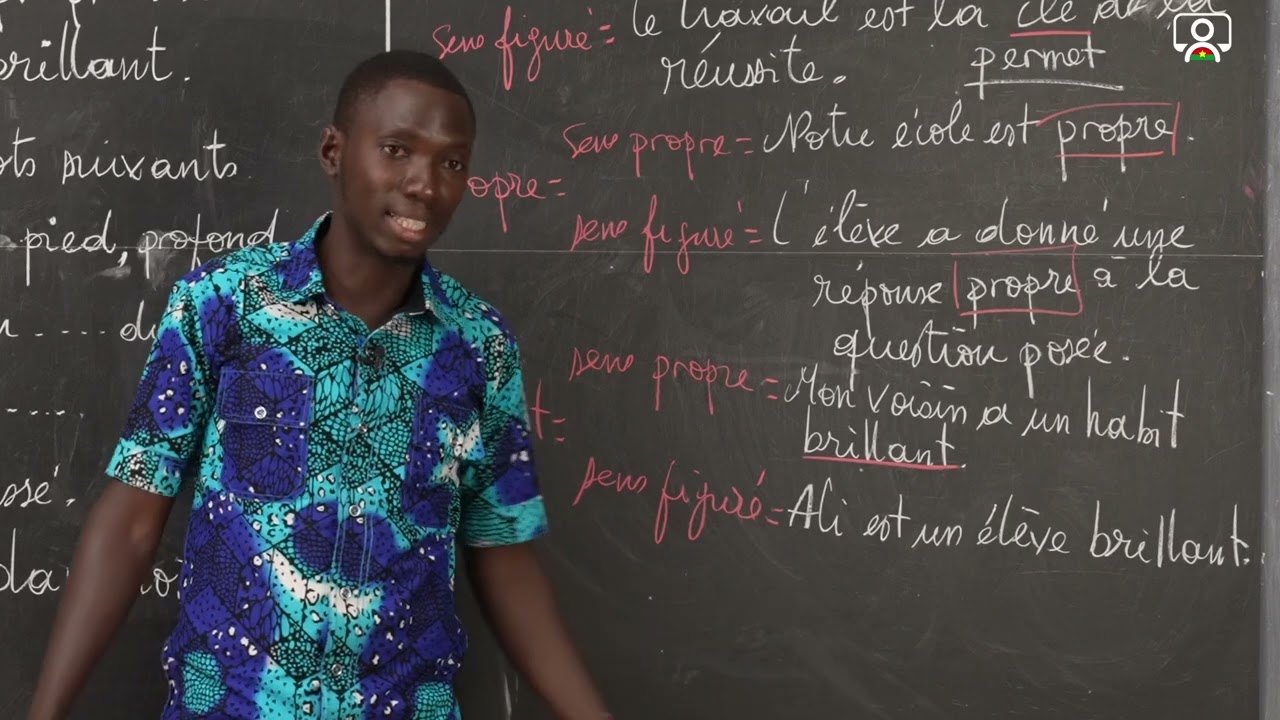 brillant.
suivants
pied, profond
ssé.
sens figuré = le travail est la clé de la
réussite. permet
sens propre = Notre école est propre.
opre =
sens figuré = L'élève a donné une
réponse propre à la
question posée.
sens propre = Mon voisin a un habit
brillant.
t =
sens figuré = Ali est un élève brillant.